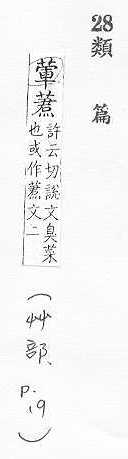 28類篇
葷䓰
許云切說文臭菜
也或作䓰文二
(艸部, p.19)